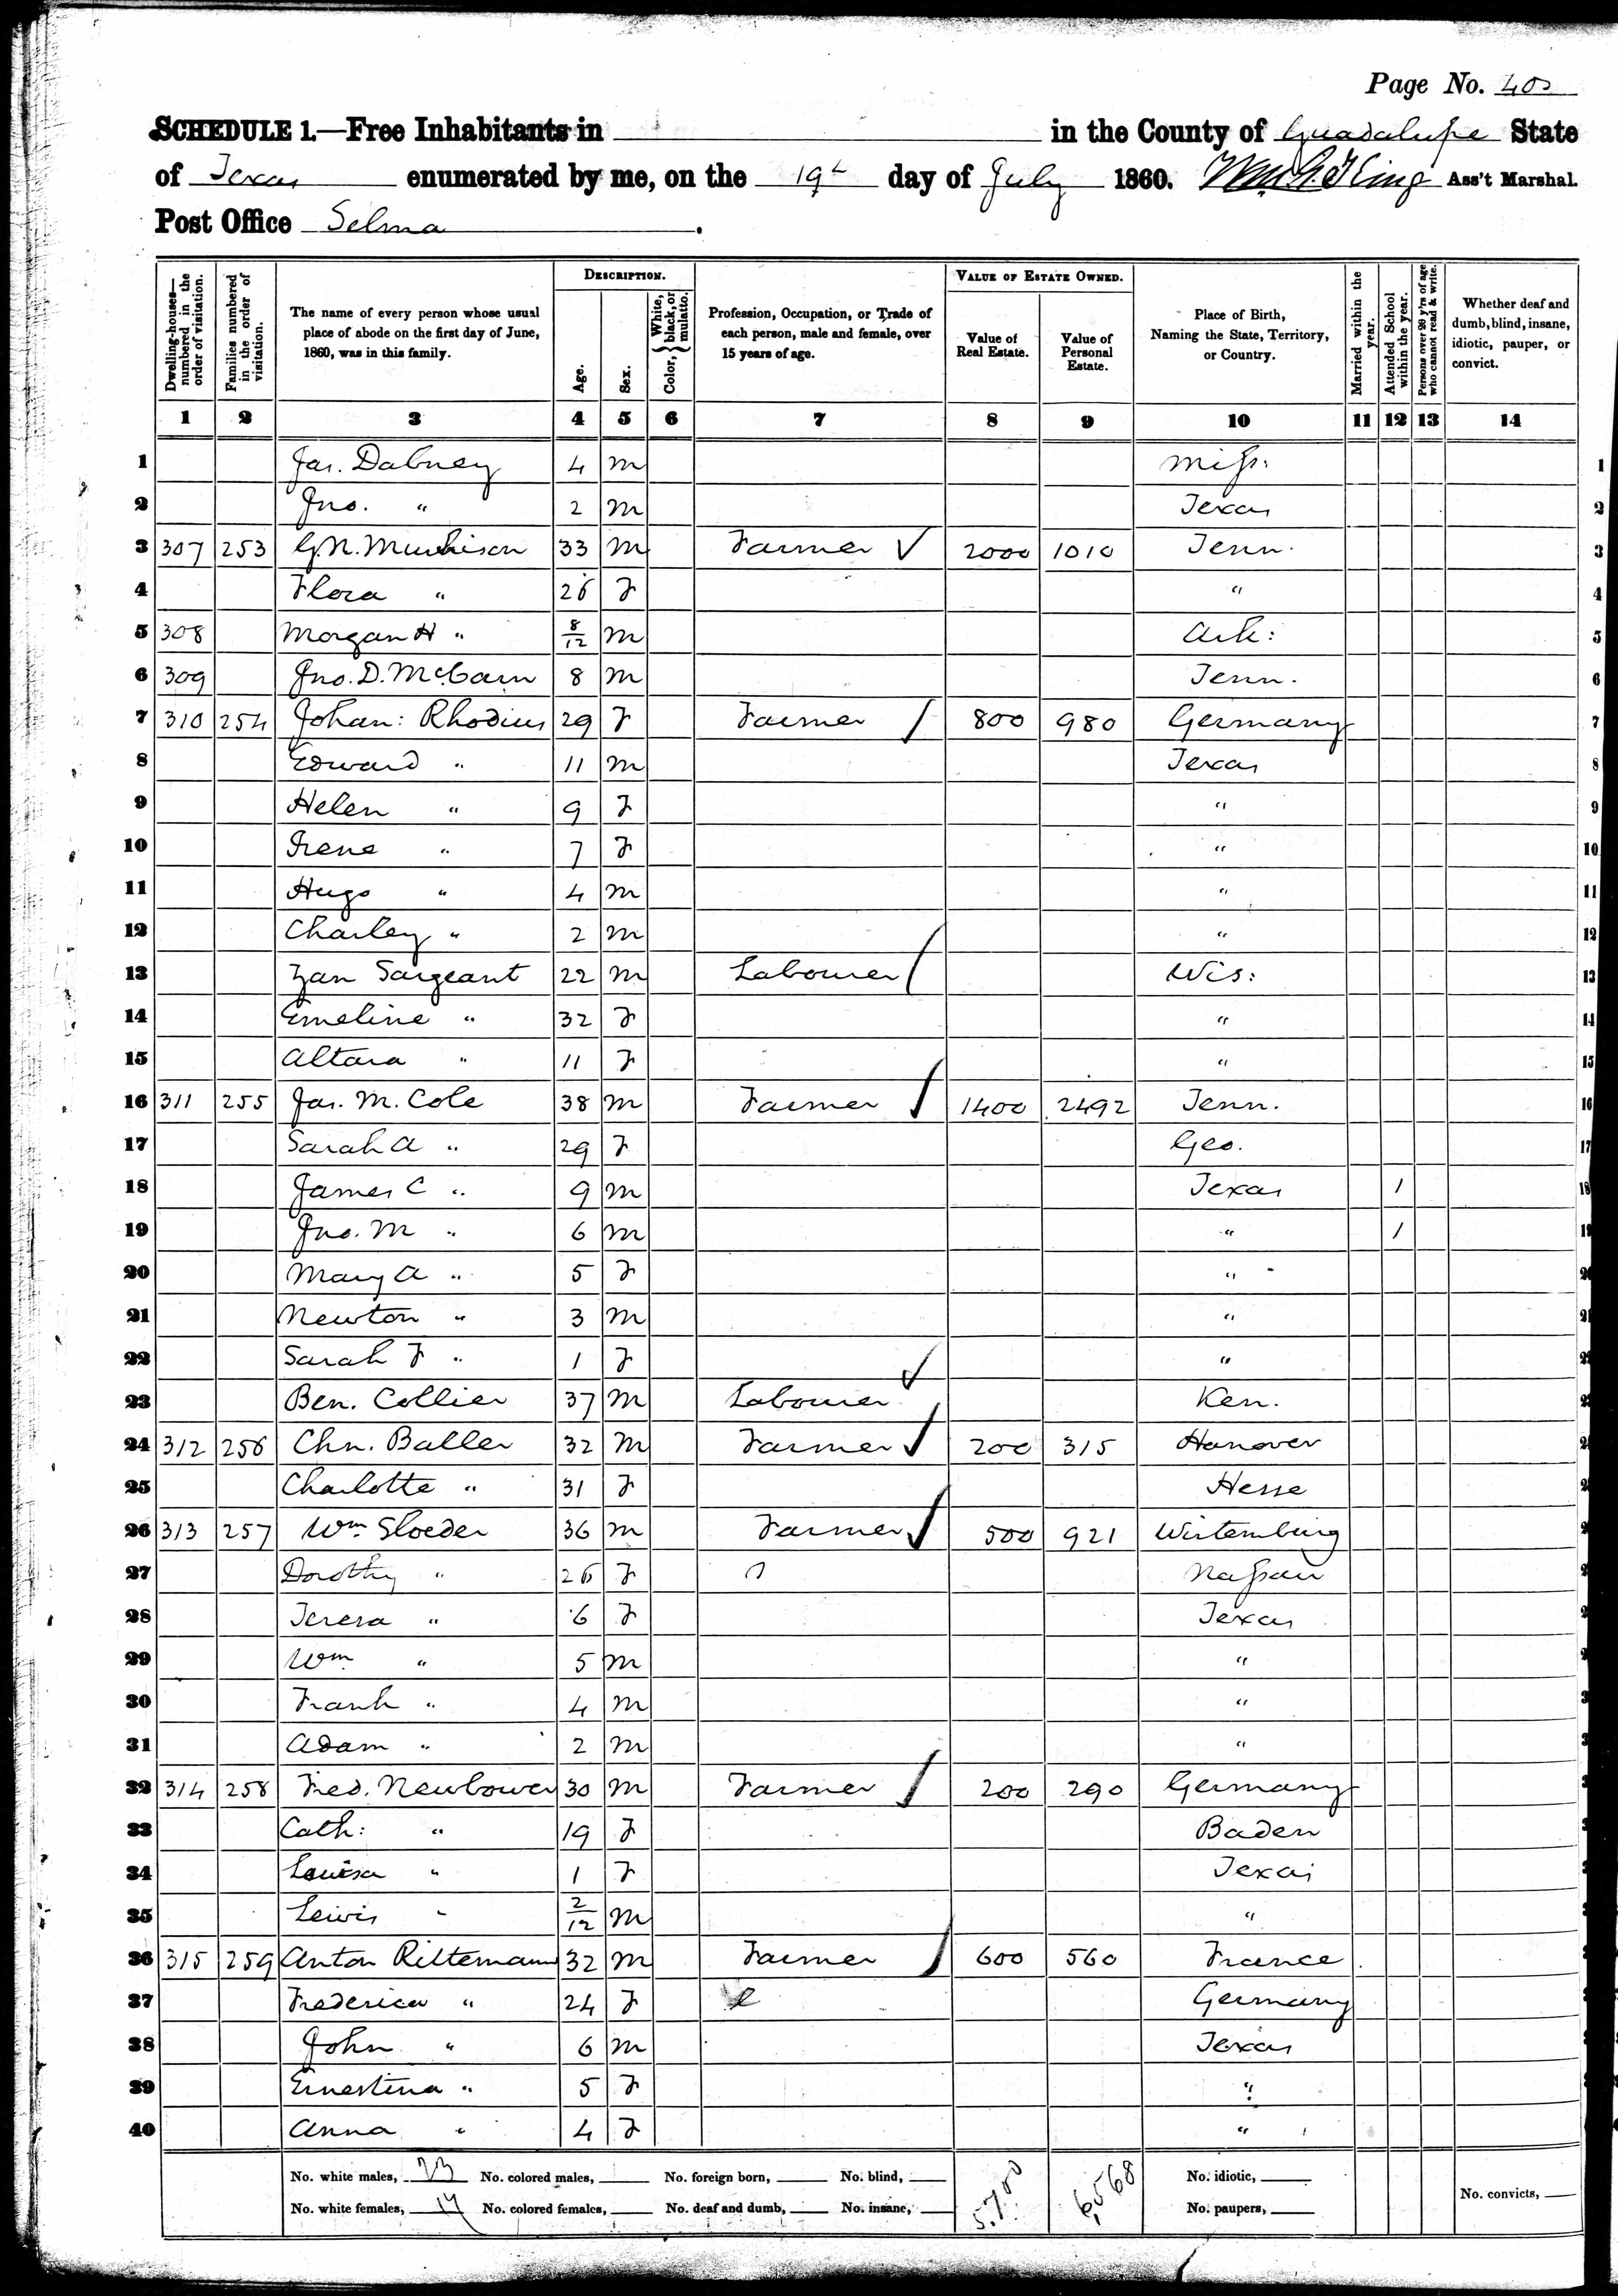 Page No. 40
SCHEDULE 1.—Free Inhabitants in in the County of Guadalupe State
of Texas enumerated by me, on the 19th day of July 1860. Wm. G. King Ass't Marshal.
Post Office Selma.
Dwelling-houses—numbered in the order of visitation. Families numbered in the order of visitation. The name of every person whose usual place of abode on the first day of June, 1860, was in this family. DESCRIPTION. Age. Sex. Color, {White, black, or mulatto. Profession, Occupation, or Trade of each person, male and female, over 15 years of age. VALUE OF ESTATE OWNED. Value of Real Estate. Value of Personal Estate. Place of Birth, Naming the State, Territory, or Country. Married within the year. Attended School within the year. Persons over 20 y'rs of age who cannot read & write. Whether deaf and dumb, blind, insane, idiotic, pauper, or convict.
1 2 3 4 5 6 7 8 9 10 11 12 13 14
1 Jas. Dabney 4 m Miss: 1
2 Jno. " 2 m Texas 2
3 307 253 G.N. Murchison 33 m Farmer ✓ 2000 1010 Tenn. 3
4 Flora " 26 F " 4
5 308 Morgan H " 8/12 m Ark: 5
6 309 Jno. D. McCarn 8 m Tenn. 6
7 310 254 Johan: Rhodius 29 F Farmer / 800 980 Germany 7
8 Edward " 11 m Texas 8
9 Helen " 9 F " 9
10 Irene " 7 F " 10
11 Hugo " 4 m " 11
12 Charley " 2 m " 12
13 Zan Sargeant 22 m Labourer / Wis: 13
14 Emeline " 32 F " 14
15 Altara " 11 F " 15
16 311 255 Jas. M. Cole 38 m Farmer ✓ 1400 2492 Tenn. 16
17 Sarah A " 29 F Geo. 17
18 James C " 9 m Texas 1 18
19 Jno. M " 6 m " 1 19
20 Mary A " 5 F " 20
21 Newton " 3 m " 21
22 Sarah F " 1 F " 22
23 Ben. Collier 37 m Labourer ✓ Ken. 23
24 312 256 Chn. Baller 32 m Farmer ✓ 200 315 Hanover 2
25 Charlotte " 31 F Hesse 2
26 313 257 Wm. Sloeder 36 m Farmer ✓ 500 921 Wirtemburg 2
27 Dorothy " 26 F Nassau 2
28 Teresa " 6 F Texas 2
29 Wm " 5 m " 2
30 Frank " 4 m " 3
31 Adam " 2 m " 3
32 314 258 Fred. Newbower 30 m Farmer / 200 290 Germany 3
33 Cath: " 19 F Baden 3
34 Louisa " 1 F Texas 3
35 Lewis " 2/12 m " 3
36 315 259 Anton Rittemann 32 m Farmer / 600 560 France 3
37 Frederica " 24 F Germany 3
38 John " 6 m Texas 3
39 Ernestina " 5 F " 3
40 Anna " 4 F "
No. white males, 23 No. colored males, No. foreign born, No. blind, 5700 6568 No. idiotic,
No. white females, 17 No. colored females, No. deaf and dumb, No. insane, No. paupers, No. convicts,